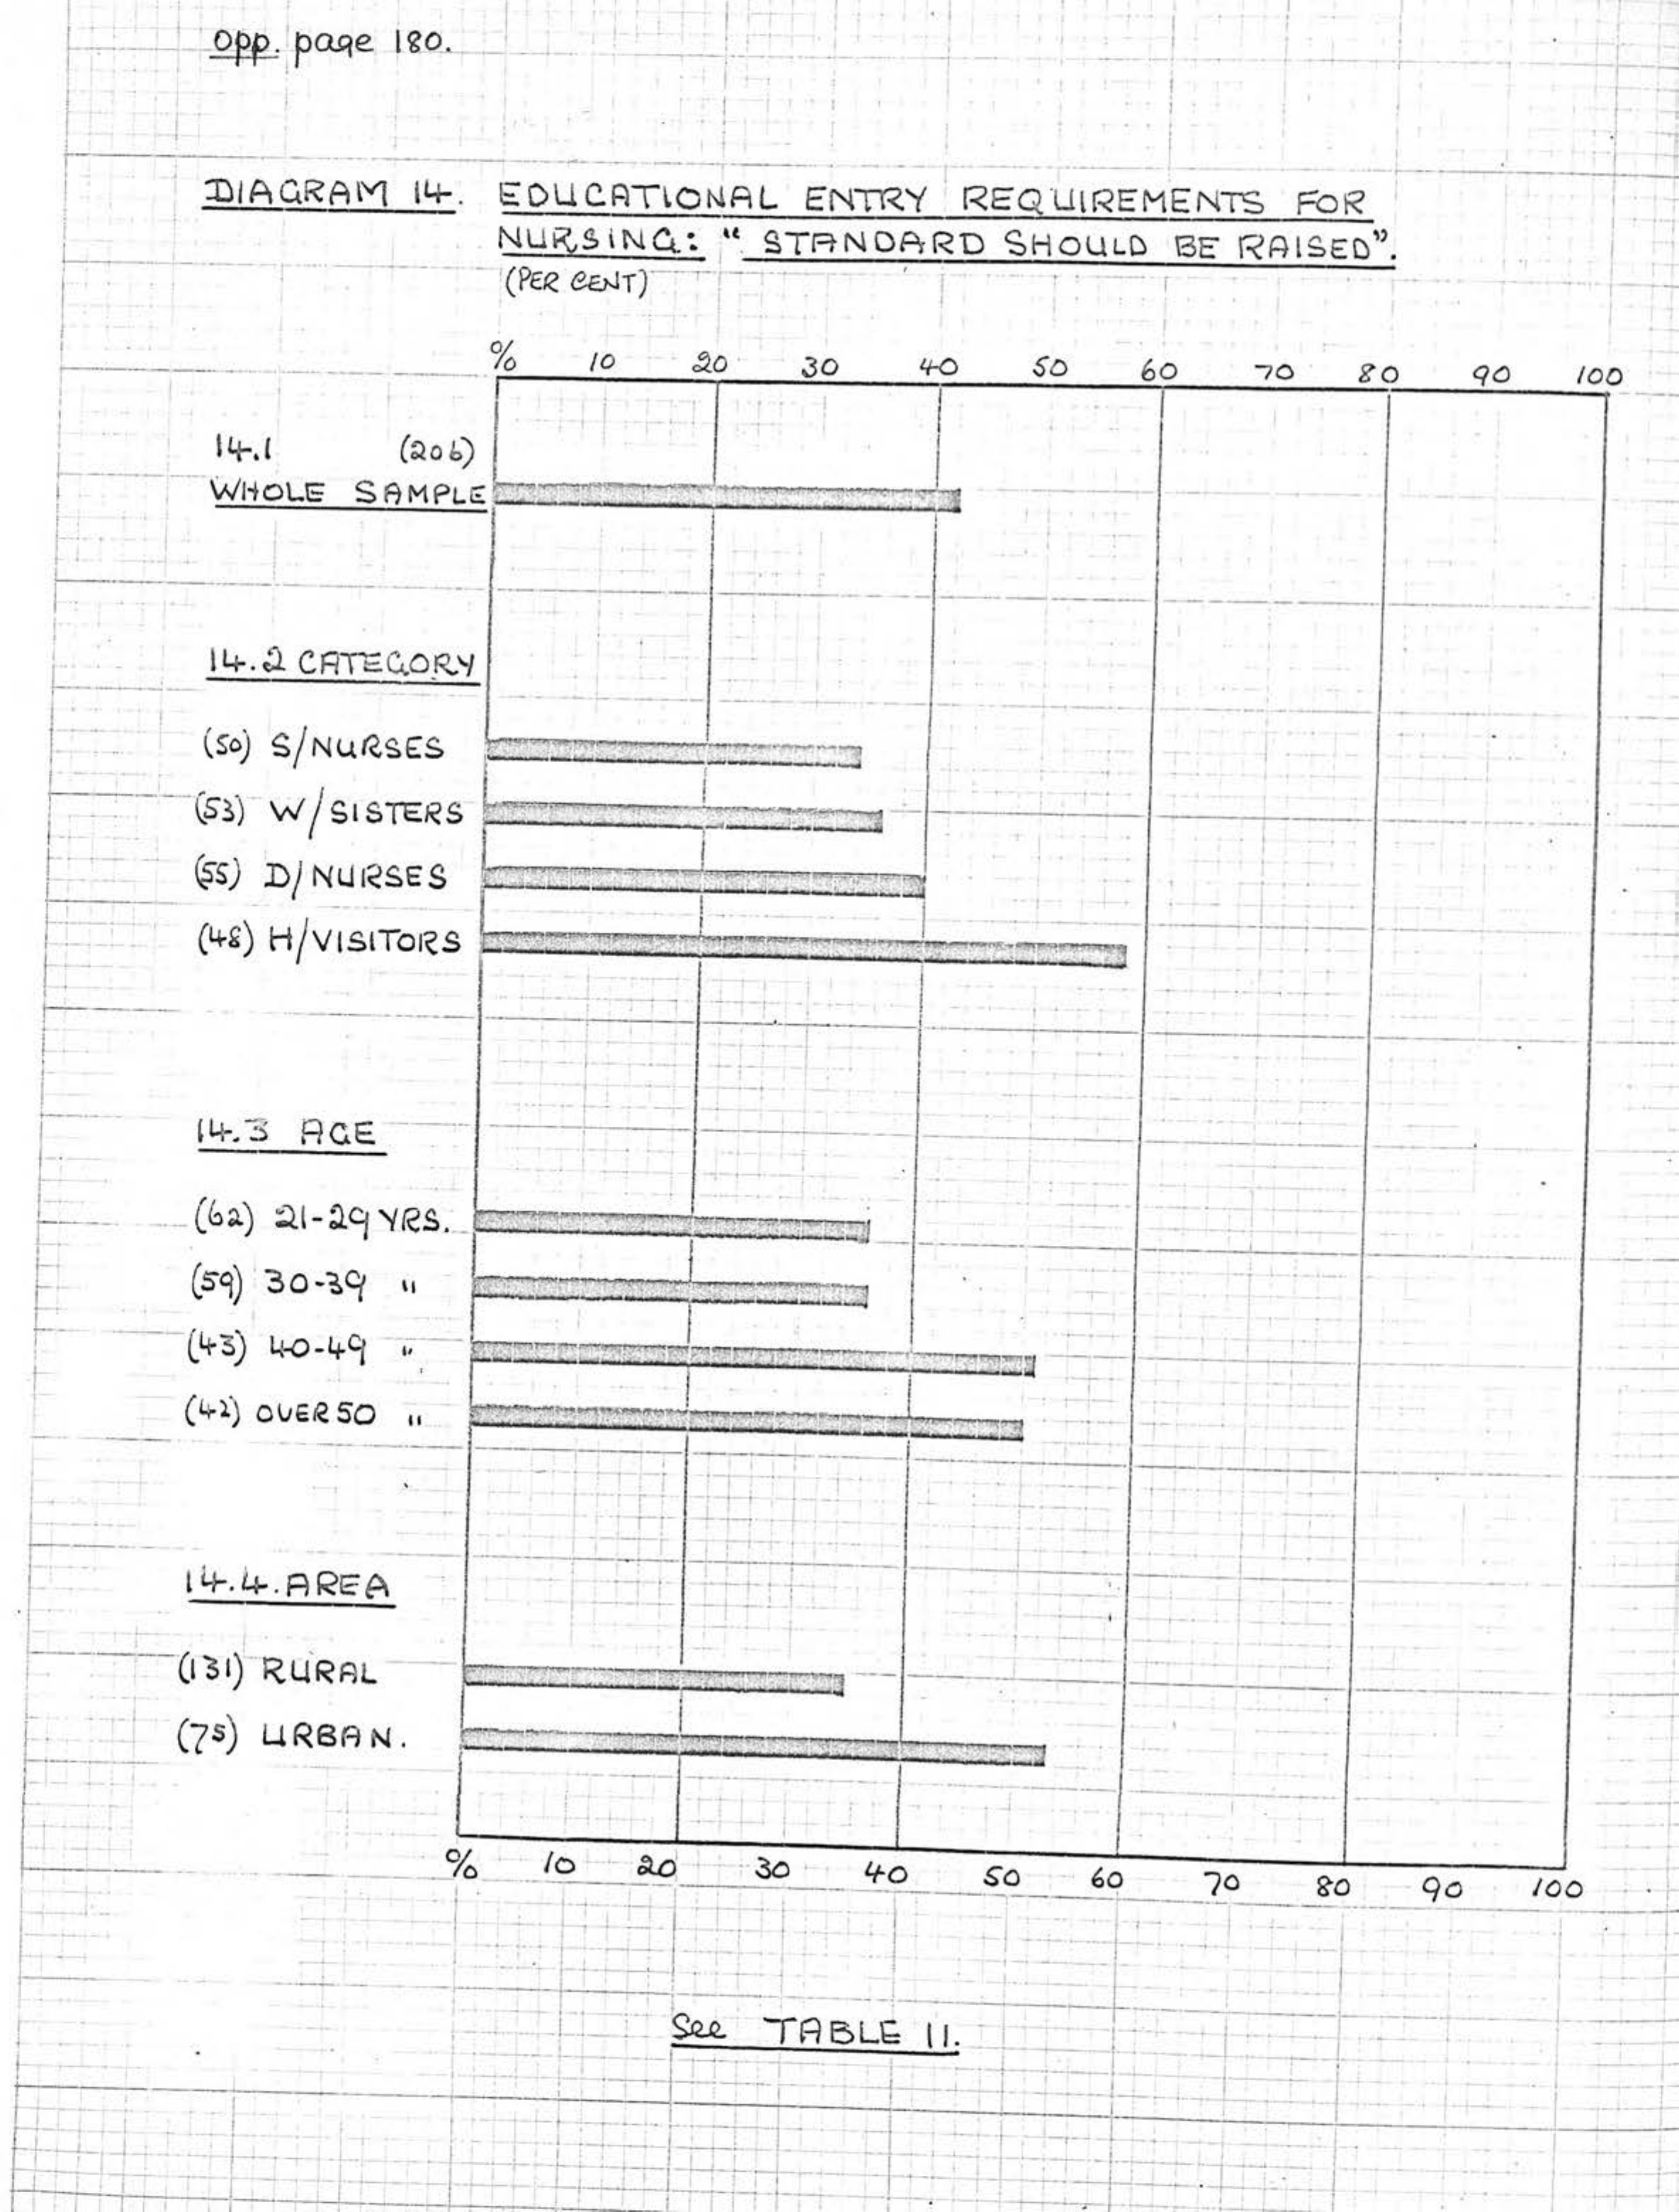 opp. page 180.
DIAGRAM 14. EDUCATIONAL ENTRY REQUIREMENTS FOR
NURSING: "STANDARD SHOULD BE RAISED".
(PER CENT)
% 10 20 30 40 50 60 70 80 90 100
14.1 (206)
WHOLE SAMPLE
14.2 CATEGORY
(50) S/NURSES
(53) W/SISTERS
(55) D/NURSES
(48) H/VISITORS
14.3 AGE
(62) 21-29 YRS.
(59) 30-39 "
(43) 40-49 "
(42) OVER 50 "
14.4. AREA
(131) RURAL
(75) URBAN.
% 10 20 30 40 50 60 70 80 90 100
See TABLE 11.